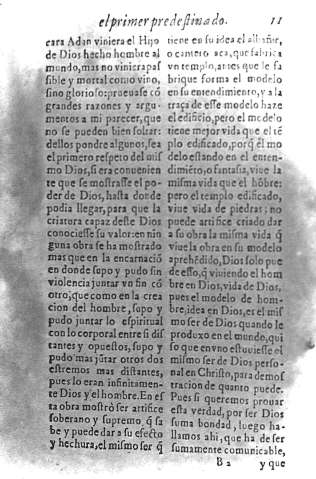 el primer predestinado. 11
cara Adan viniera el Hijo
de Dios hecho hombre al
mundo, mas no viniera pas
sible y mortal como vino,
sino glorioso: prueuase cõ
grandes razones y argu-
mentos a mi parecer, que
no se pueden bien soltar:
dellos pondre algunos, sea
el primero respeto del mis
mo Dios, si era convenien
te que se mostrasse el po-
der de Dios, hasta donde
podia llegar, para que la
criatura capaz desse Dios
conociesse su valor: en nin
guna obra se ha mostrado
mas que en la encarnaciõ
en donde supo y pudo sin
violencia juntar vn fin cõ
otro, que como en la crea
cion del hombre, supo y
pudo juntar lo espiritual
con lo corporal entre si dis
tantes y opuestos, supo y
pudo mas jũtar otros dos
estremos mas distantes,
pues lo eran infinitamen-
te Dios y el hombre. En es
ta obra mostrò ser artifice
soberano y supremo, q̃ sa
be y puede dar a su efecto
y hechura, el mismo ser q̃
tiene en su idea el albañir,
o cantero aca, que fabrica
vn templo, antes que le fa
brique forma el modelo
en su entendimiento, y a la
traça de esse modelo haze
el edificio, pero el modelo
tiene mejor vida que el tẽ
plo edificado, porq̃ el mo
delo estando en el enten-
dimiẽto, o fantasia, viue la
misma vida que el hõbre:
pero el templo edificado,
viue vida de piedras: no
puede artifice criado dar
a su obra la misma vida q̃
viue la obra en su modelo
aprehẽdido, Dios solo pue
de esso, q̃ viuiendo el hom
bre en Dios, vida de Dios,
pues el modelo de hom-
bre, idea en Dios, es el mis
mo ser de Dios quando le
produxo en el mundo, qui
so que en vno estuuiesse el
mismo ser de Dios perso-
nal en Christo, para demos
tracion de quanto puede.
Pues si queremos prouar
esta verdad, por ser Dios
suma bondad, luego ha-
llamos ahi, que ha de ser
sumamente comunicable,
B 2 y que